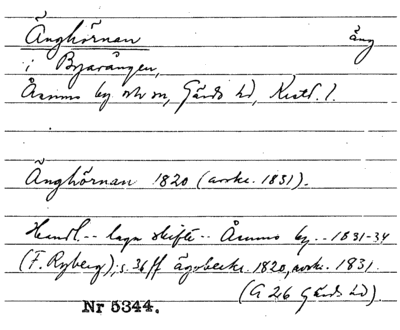 Änghörnan äng
i Byavången,
Åsums by och sn, Gärds hd, Krist. l.
Änghörnan 1820 (avskr. 1831).
Handl. -- laga skifte -- Åsums by -- 1831-34
(F. Ryberg); s. 36 ff ägobeskr. 1820, avskr. 1831.
(G 26 Gärds hd).
Nr 5344.